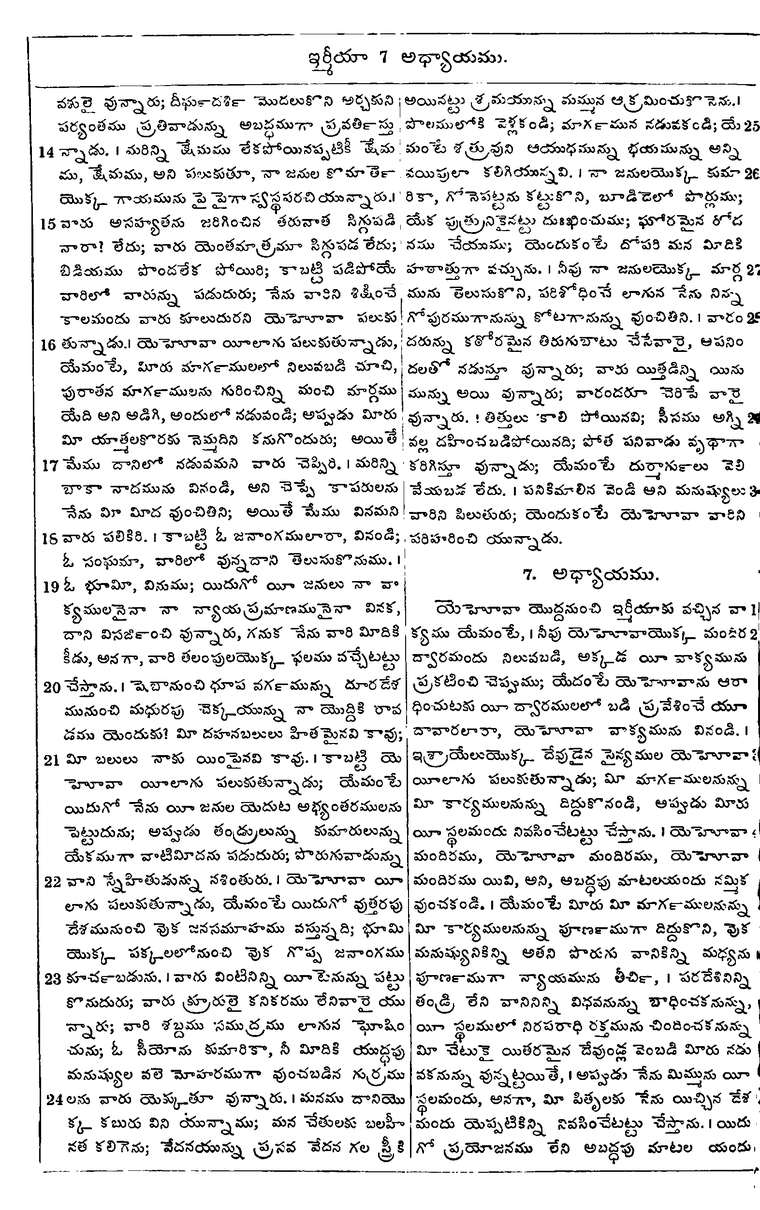 ఇర్మీయా 7 అధ్యాయము.
వశులై వున్నారు; దీర్ఘదర్శి మొదలుకొని అర్చకుని
పర్యంతము ప్రతివాడున్ను అబద్ధముగా ప్రవర్తిస్తు
14 న్నాడు. । మరిన్ని క్షేమము లేకపోయినప్పటికీ క్షేమ
ము, క్షేమము, అని పలుకుతూ, నా జనుల కొమార్తె
యొక్క గాయమును పై పైగా స్వస్థపరచియున్నారు. ।
15 వారు అసహ్యతను జరిగించిన తరువాత సిగ్గుపడి
నారా? లేదు; వారు యెంతమాత్రమూ సిగ్గుపడ లేదు;
బిడియము పొందలేక పోయిరి; కాబట్టి పడిపోయే
వారిలో వారున్ను పడుదురు; నేను వారిని శిక్షించే
కాలమందు వారు కూలుదురని యెహోవా పలుకు
16 తున్నాడు. । యెహోవా యీలాగు పలుకుతున్నాడు,
యేమంటే, మీరు మార్గములలో నిలువబడి చూచి,
పురాతన మార్గములను గురించిన్ని మంచి మార్గము
యేది అని అడిగి, అందులో నడువండి; అప్పుడు మీరు
మీ యాత్మలకొరకు నెమ్మదిని కనుగొందురు; అయితే
17 మేము దానిలో నడువమని వారు చెప్పిరి. । మరిన్ని
బాకా నాదమును వినండి, అని చెప్పే కాపరులను
నేను మీ మీద వుంచితిని; అయితే మేము వినమని
18 వారు పలికిరి. । కాబట్టి ఓ జనాంగములారా, వినండి;
ఓ సంఘమా, వారిలో వున్నదాని తెలుసుకొనుము. ।
19 ఓ భూమీ, వినుము; యిదుగో యీ జనులు నా వా
క్యములనైనా నా న్యాయప్రమాణమునైనా వినక,
దాని విసర్జించి వున్నారు, గనుక నేను వారి మీదికి
కీడు, అనగా, వారి తలంపులయొక్క ఫలము వచ్చేటట్టు
20 చేస్తాను. । షెబానుంచి ధూప వర్గమున్ను దూరదేశ
మునుంచి మధురపు చెక్కయున్ను నా యొద్దికి రావ
డము యెందుకు? మీ దహనబలులు హితమైనవి కావు;
21 మీ బలులు నాకు యింపైనవి కావు. । కాబట్టి యె
హోవా యీలాగు పలుకుతున్నాడు; యేమంటే
యిదుగో నేను యీ జనుల యెదుట అభ్యంతరములను
పెట్టుదును; అప్పుడు తండ్రులున్ను కుమారులున్ను
యేకముగా వాటిమీదను పడుదురు; పొరుగువాడున్ను
22 వాని స్నేహితుడున్ను నశింతురు. । యెహోవా యీ
లాగు పలుకుతున్నాడు, యేమంటే యిదుగో వుత్తరపు
దేశమునుంచి వొక జనసమూహము వస్తున్నది; భూమి
యొక్క పక్కలలోనుంచి వొక గొప్ప జనాంగము
23 కూర్చబడును. । వారు వింటినిన్ని యీటెనున్ను పట్టు
కొనుదురు; వారు క్రూరులై కనికరము లేనివారై యు
న్నారు; వారి శబ్దము సముద్రము లాగున ఘోషిం
చును; ఓ సీయోను కుమారికా, నీ మీదికి యుద్ధపు
మనుష్యుల వలె మోహరముగా వుంచబడిన గుర్రము
24 లను వారు యెక్కుతూ వున్నారు. । మనము దానియొ
క్క కబురు విని యున్నాము; మన చేతులకు బలహీ
నత కలిగెను; వేదనయున్ను ప్రసవ వేదన గల స్త్రీకి
అయినట్టు శ్రమయున్ను మమ్మున ఆక్రమించుకొనెను. ।
పొలములోకి వెళ్లకండి; మార్గమున నడువకండి; యే 25
మంటే శత్రువుని ఆయుధమున్ను భయమున్ను అన్ని
వయిపులా కలిగియున్నవి. । నా జనులయొక్క కుమా 26
రికా, గోనెపట్టను కట్టుకొని, బూడిదెలో పొర్లుము;
యేక పుత్రునికైనట్టు దుఃఖించుము; ఘోరమైన రోద
నము చేయుము; యెందుకంటే దోపరి మన మీదికి
హఠాత్తుగా వచ్చును. । నీవు నా జనులయొక్క మార్గ 27
మును తెలుసుకొని, పరిశోధించే లాగున నేను నిన్ను
గోపురముగానున్ను కోటగానున్ను వుంచితిని. । వారం 28
దరున్ను కఠోరమైన తిరుగుబాటు చేసేవారై, అపనిం
దలతో నడుస్తూ వున్నారు; వారు యిత్తడిన్ని యిను
మున్ను అయి వున్నారు; వారందరూ చెరిపే వారై
వున్నారు. । తిత్తులు కాలి పోయినవి; సీసము అగ్ని 29
వల్ల దహించబడిపోయినది; పోత పనివాడు వృథాగా
కరిగిస్తూ వున్నాడు; యేమంటే దుర్మార్గులు వెలి
వేయబడ లేదు. । పనికిమాలిన వెండి అని మనుష్యులు 3
వారిని పిలుతురు; యెందుకంటే యెహోవా వారిని
పరిహరించి యున్నాడు.
7. అధ్యాయము.
యెహోవా యొద్దనుంచి ఇర్మీయాకు వచ్చిన వా 1
క్యము యేమంటే, । నీవు యెహోవాయొక్క మందిర 2
ద్వారమందు నిలువబడి, అక్కడ యీ వాక్యమును
ప్రకటించి చెప్పుము; యేదంటే యెహోవాను ఆరా
ధించుటకు యీ ద్వారములలో బడి ప్రవేశించే యూ
దావారలారా, యెహోవా వాక్యమును వినండి. ।
ఇశ్రాయేలుయొక్క దేవుడైన సైన్యముల యెహోవా
యీలాగు పలుకుతున్నాడు; మీ మార్గములనున్ను
మీ కార్యములనున్ను దిద్దుకొనండి, అప్పుడు మీరు
యీ స్థలమందు నివసించేటట్టు చేస్తాను. । యెహోవా
మందిరము, యెహోవా మందిరము, యెహోవా
మందిరము యివి, అని, అబద్ధపు మాటలయందు నమ్మిక
వుంచకండి. । యేమంటే మీరు మీ మార్గములనున్ను
మీ కార్యములనున్ను పూర్ణముగా దిద్దుకొని, వొక
మనుష్యునికిన్ని అతని పొరుగు వానికిన్ని మధ్యను
పూర్ణముగా న్యాయమును తీర్చి, । పరదేశినిన్ని
తండ్రి లేని వానినిన్ని విధవనున్ను బాధించకనున్ను,
యీ స్థలములో నిరపరాధి రక్తమును చిందించకనున్ను
మీ చేటుకై యితరమైన దేవుండ్ల వెంబడి మీరు నడు
వకనున్ను వున్నట్టయితే, । అప్పుడు నేను మిమ్మును యీ
స్థలమందు, అనగా, మీ పితృలకు నేను యిచ్చిన దేశ
మందు యెప్పటికిన్ని నివసించేటట్టు చేస్తాను. । యిదు
గో ప్రయోజనము లేని అబద్ధపు మాటల యందు